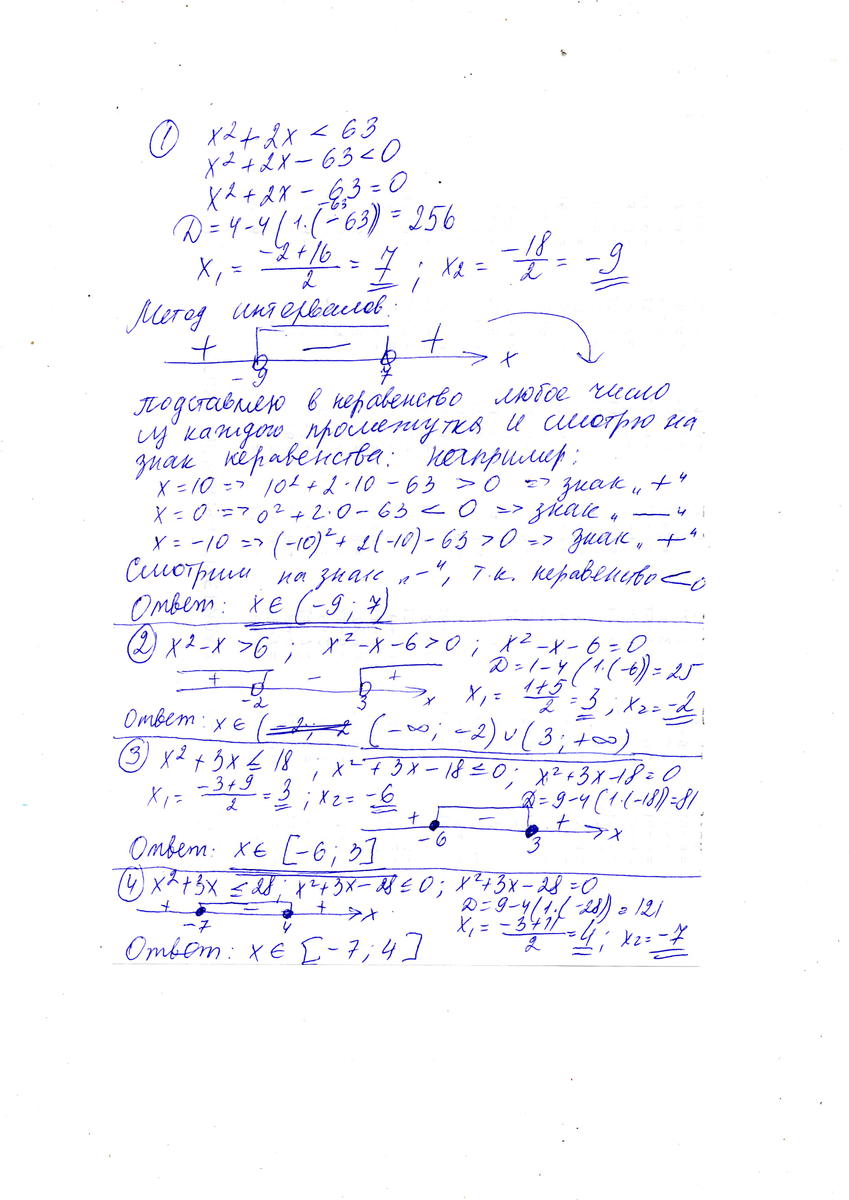 1 x² + 2x < 63
x² + 2x − 63 < 0
x² + 2x − 63 = 0
−63
D = 4 − 4(1·(−63)) = 256
x₁ = (−2+16)/2 = 7 ; x₂ = −18/2 = −9
Метод интервалов:
+ − + x
−9 7
Подставляю в неравенство любое число
из каждого промежутка и смотрю на
знак неравенства: например:
x = 10 => 10² + 2·10 − 63 > 0 => знак „+“
x = 0 => 0² + 2·0 − 63 < 0 => знак „—“
x = −10 => (−10)² + 2(−10) − 63 > 0 => знак „+“
Смотрим на знак „−“, т.к. неравенство < 0
Ответ: x ∈ (−9; 7)
2 x² − x > 6 ; x² − x − 6 > 0 ; x² − x − 6 = 0
D = 1 − 4(1·(−6)) = 25
+ − + x
−2 3
x₁ = (1+5)/2 = 3 ; x₂ = −2
Ответ: x ∈ (−2; −2 (−∞; −2) ∪ (3; +∞)
3 x² + 3x ≤ 18 ; x² + 3x − 18 ≤ 0 ; x² + 3x − 18 = 0
x₁ = (−3+9)/2 = 3 ; x₂ = −6 D = 9 − 4(1·(−18)) = 81
+ − + x
−6 3
Ответ: x ∈ [−6; 3]
4 x² + 3x ≤ 28 ; x² + 3x − 28 ≤ 0 ; x² + 3x − 28 = 0
+ − + x D = 9 − 4(1·(−28)) = 121
−7 4 x₁ = (−3+11)/2 = 4 ; x₂ = −7
Ответ: x ∈ [−7; 4]